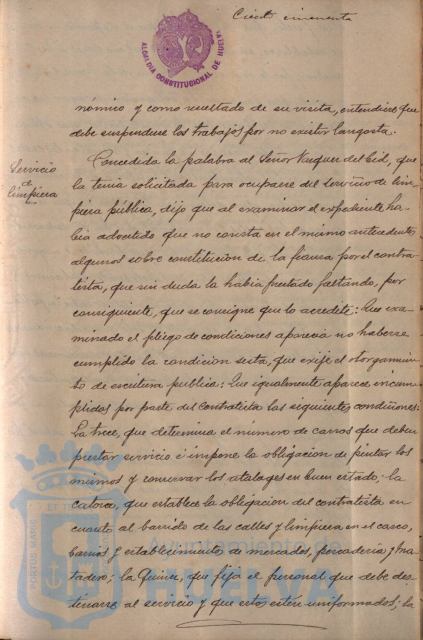 Ciento cincuenta
ALCALDIA CONSTITUCIONAL DE HUELVA
nómico y como resultado de su visita, entendiese que
debe suspenderse los trabajos por no existir langosta.
Servicio
de
limpieza
Concedida la palabra al Señor Vazquez del Cid, que
la tenia solicitada para ocuparse del servicio de lim
pieza pública, dijo que al examinar el expediente ha
bia advertido que no consta en el mismo antecedentes
algunos sobre constitucion de la fianza por el contra
tista, que sin duda la habia prestado faltando, por
consiguiente, que se consigne que lo acredete: Que exa
minado el pliego de condiciones aparecia no haberse
cumplido la condicion sexta, que exije el otorgamien
to de escritura publica: Que igualmente aparece incum
plidas por parte del contratista las siguientes condiciones:
La trece, que determina el número de carros que deben
prestar servicio é impone la obligacion de pintar los
mismos y conservar los atalages en buen estado; la
catorce, que establece la obligacion del contratista en
cuanto al barrido de las calles y limpieza en el casco,
barrios y establecimiento de mercados, pescaderia y ma
tadero; la Quince, que fija el personal que debe des
tinarse al servicio y que estos esten uniformados; la
PORTUS MARIS
ET TER
Ayuntamiento de
HUELVA